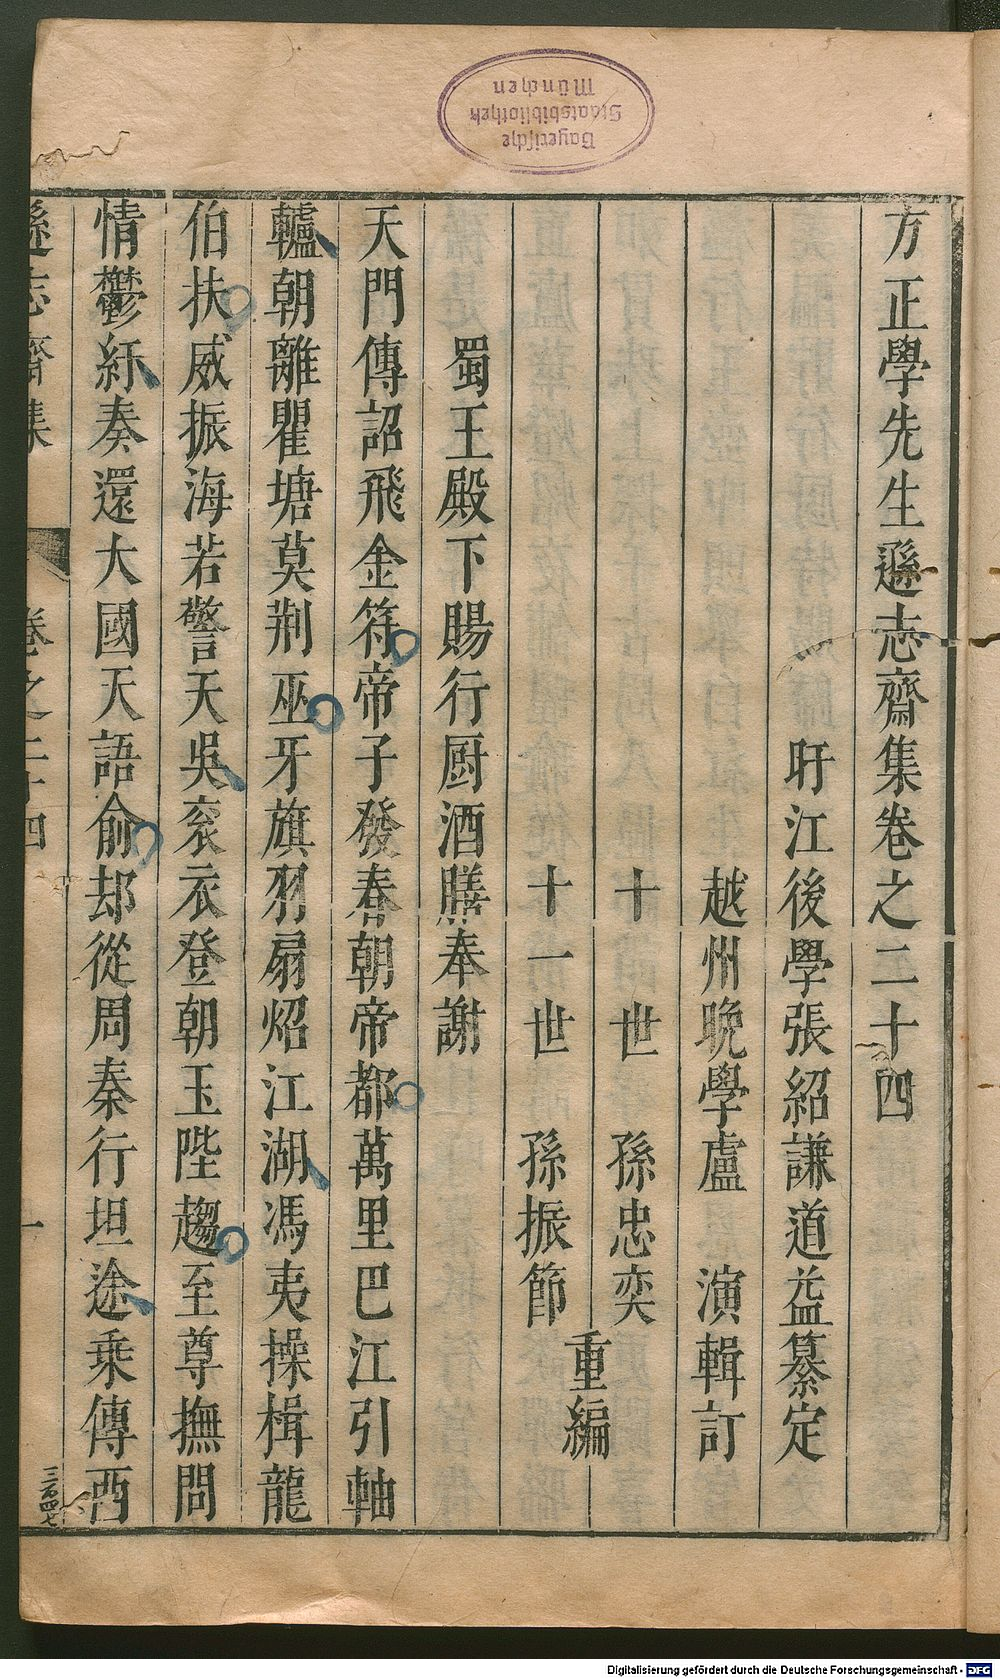 方正學先生遜志齋集卷之二十四
盱江後學張紹謙道益纂定
越州晚學盧演輯訂
十世孫忠奕
十一世孫振節
重編
蜀王殿下賜行厨酒膳奉謝
天門傳詔飛金符帝子發春朝帝都萬里巴江引軸
轤朝離瞿塘莫荆巫牙旗羽扇炤江湖馮夷操楫龍
伯扶威振海若警天吳衮衣登朝玉陛趨至尊撫問
情鬱紆奏還大國天語俞却從周秦行坦途乘傳酉
遜志齋集 卷之二十四 一
三百四七
Bayerische
Staatsbibliothek
München
Digitalisierung gefördert durch die Deutsche Forschungsgemeinschaft - DFG